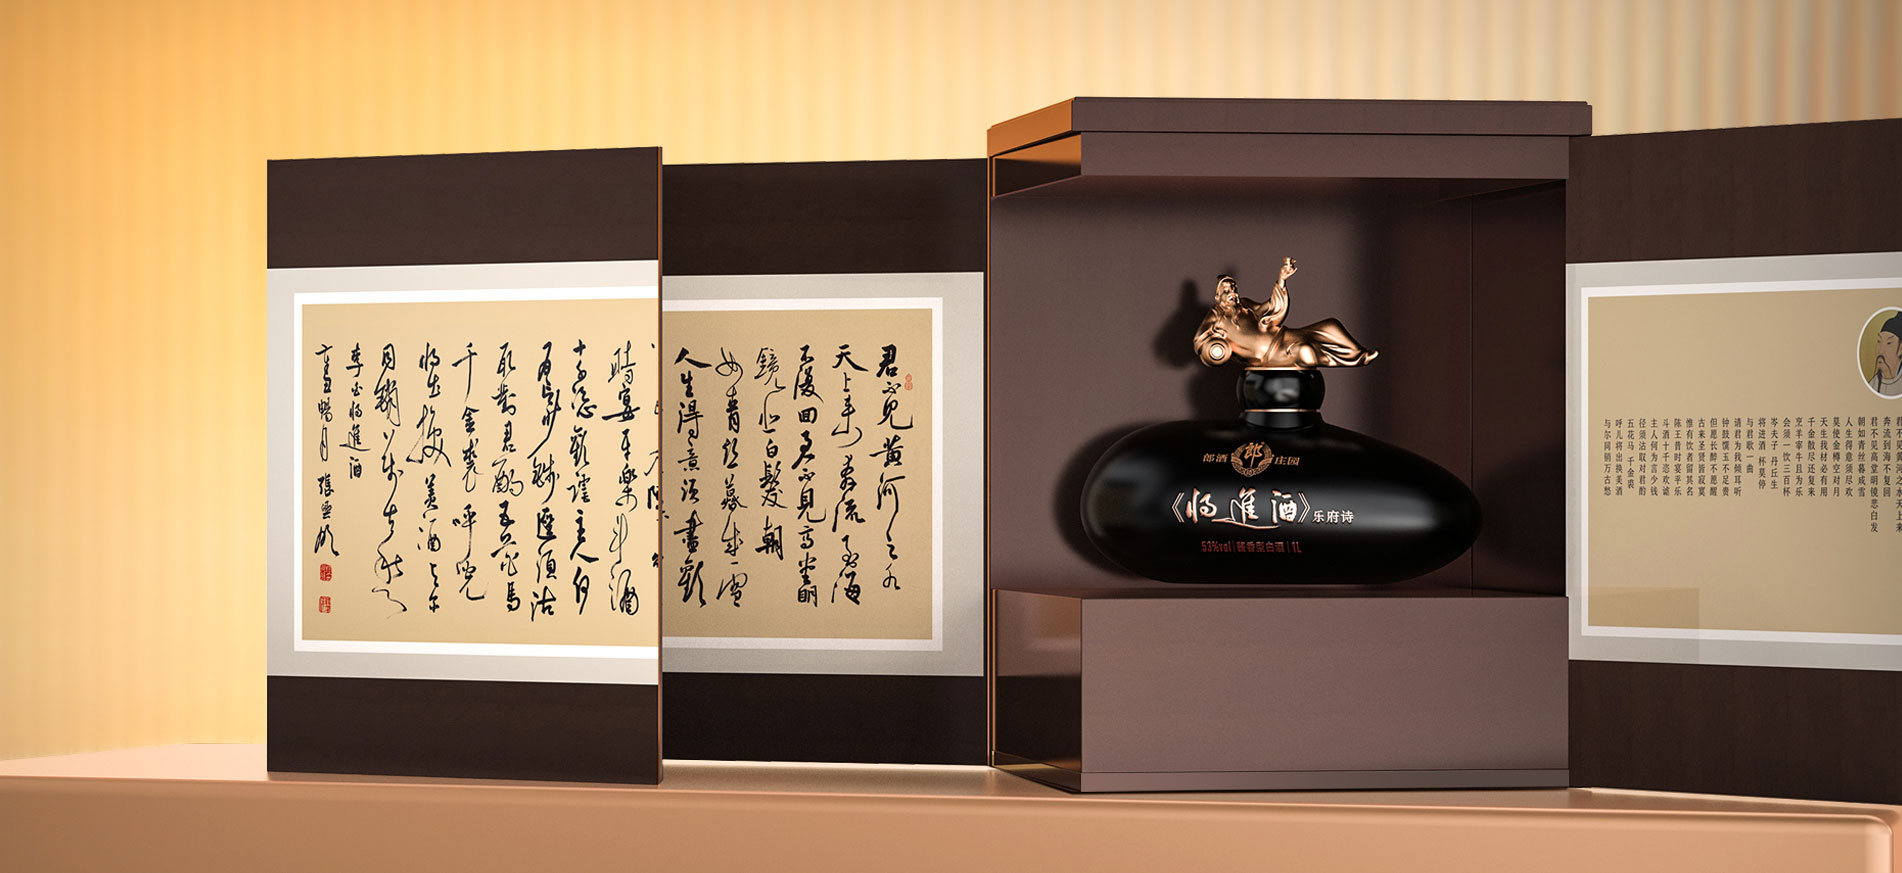 君不見黄河之水
天上来奔流到海
不復回君不見高堂明
鏡悲白髮朝
如青丝暮成雪
人生得意须盡歡
時宴平樂斗酒
十千恣歡谑主人何
为言少錢徑須沽
取對君酌五花馬
千金裘呼兒
将出換美酒与尔
同销万古愁
李白将進酒
郎酒 郎 庄园
《将進酒》乐府诗
53%vol | 酱香型白酒 | 1L
君不见黄河之水天上来
奔流到海不复回
君不见高堂明镜悲白发
朝如青丝暮成雪
人生得意须尽欢
莫使金樽空对月
天生我材必有用
千金散尽还复来
烹羊宰牛且为乐
会须一饮三百杯
岑夫子 丹丘生
将进酒 杯莫停
与君歌一曲
请君为我倾耳听
钟鼓馔玉不足贵
但愿长醉不愿醒
古来圣贤皆寂寞
惟有饮者留其名
陈王昔时宴平乐
斗酒十千恣欢谑
主人何为言少钱
径须沽取对君酌
五花马 千金裘
呼儿将出换美酒
与尔同销万古愁